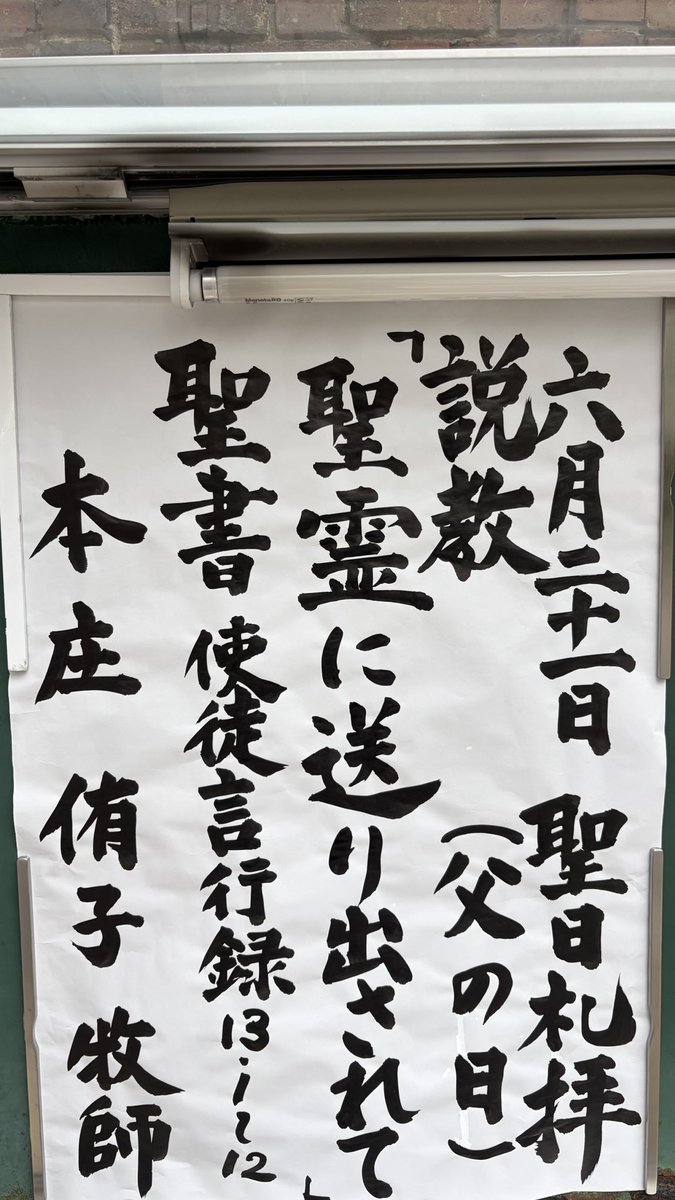 六月二十一日 聖日札拝
(父の日)
説教
「聖霊に送り出されて」
聖書 使徒言行録 13・1〜12
本庄 侑子 牧師